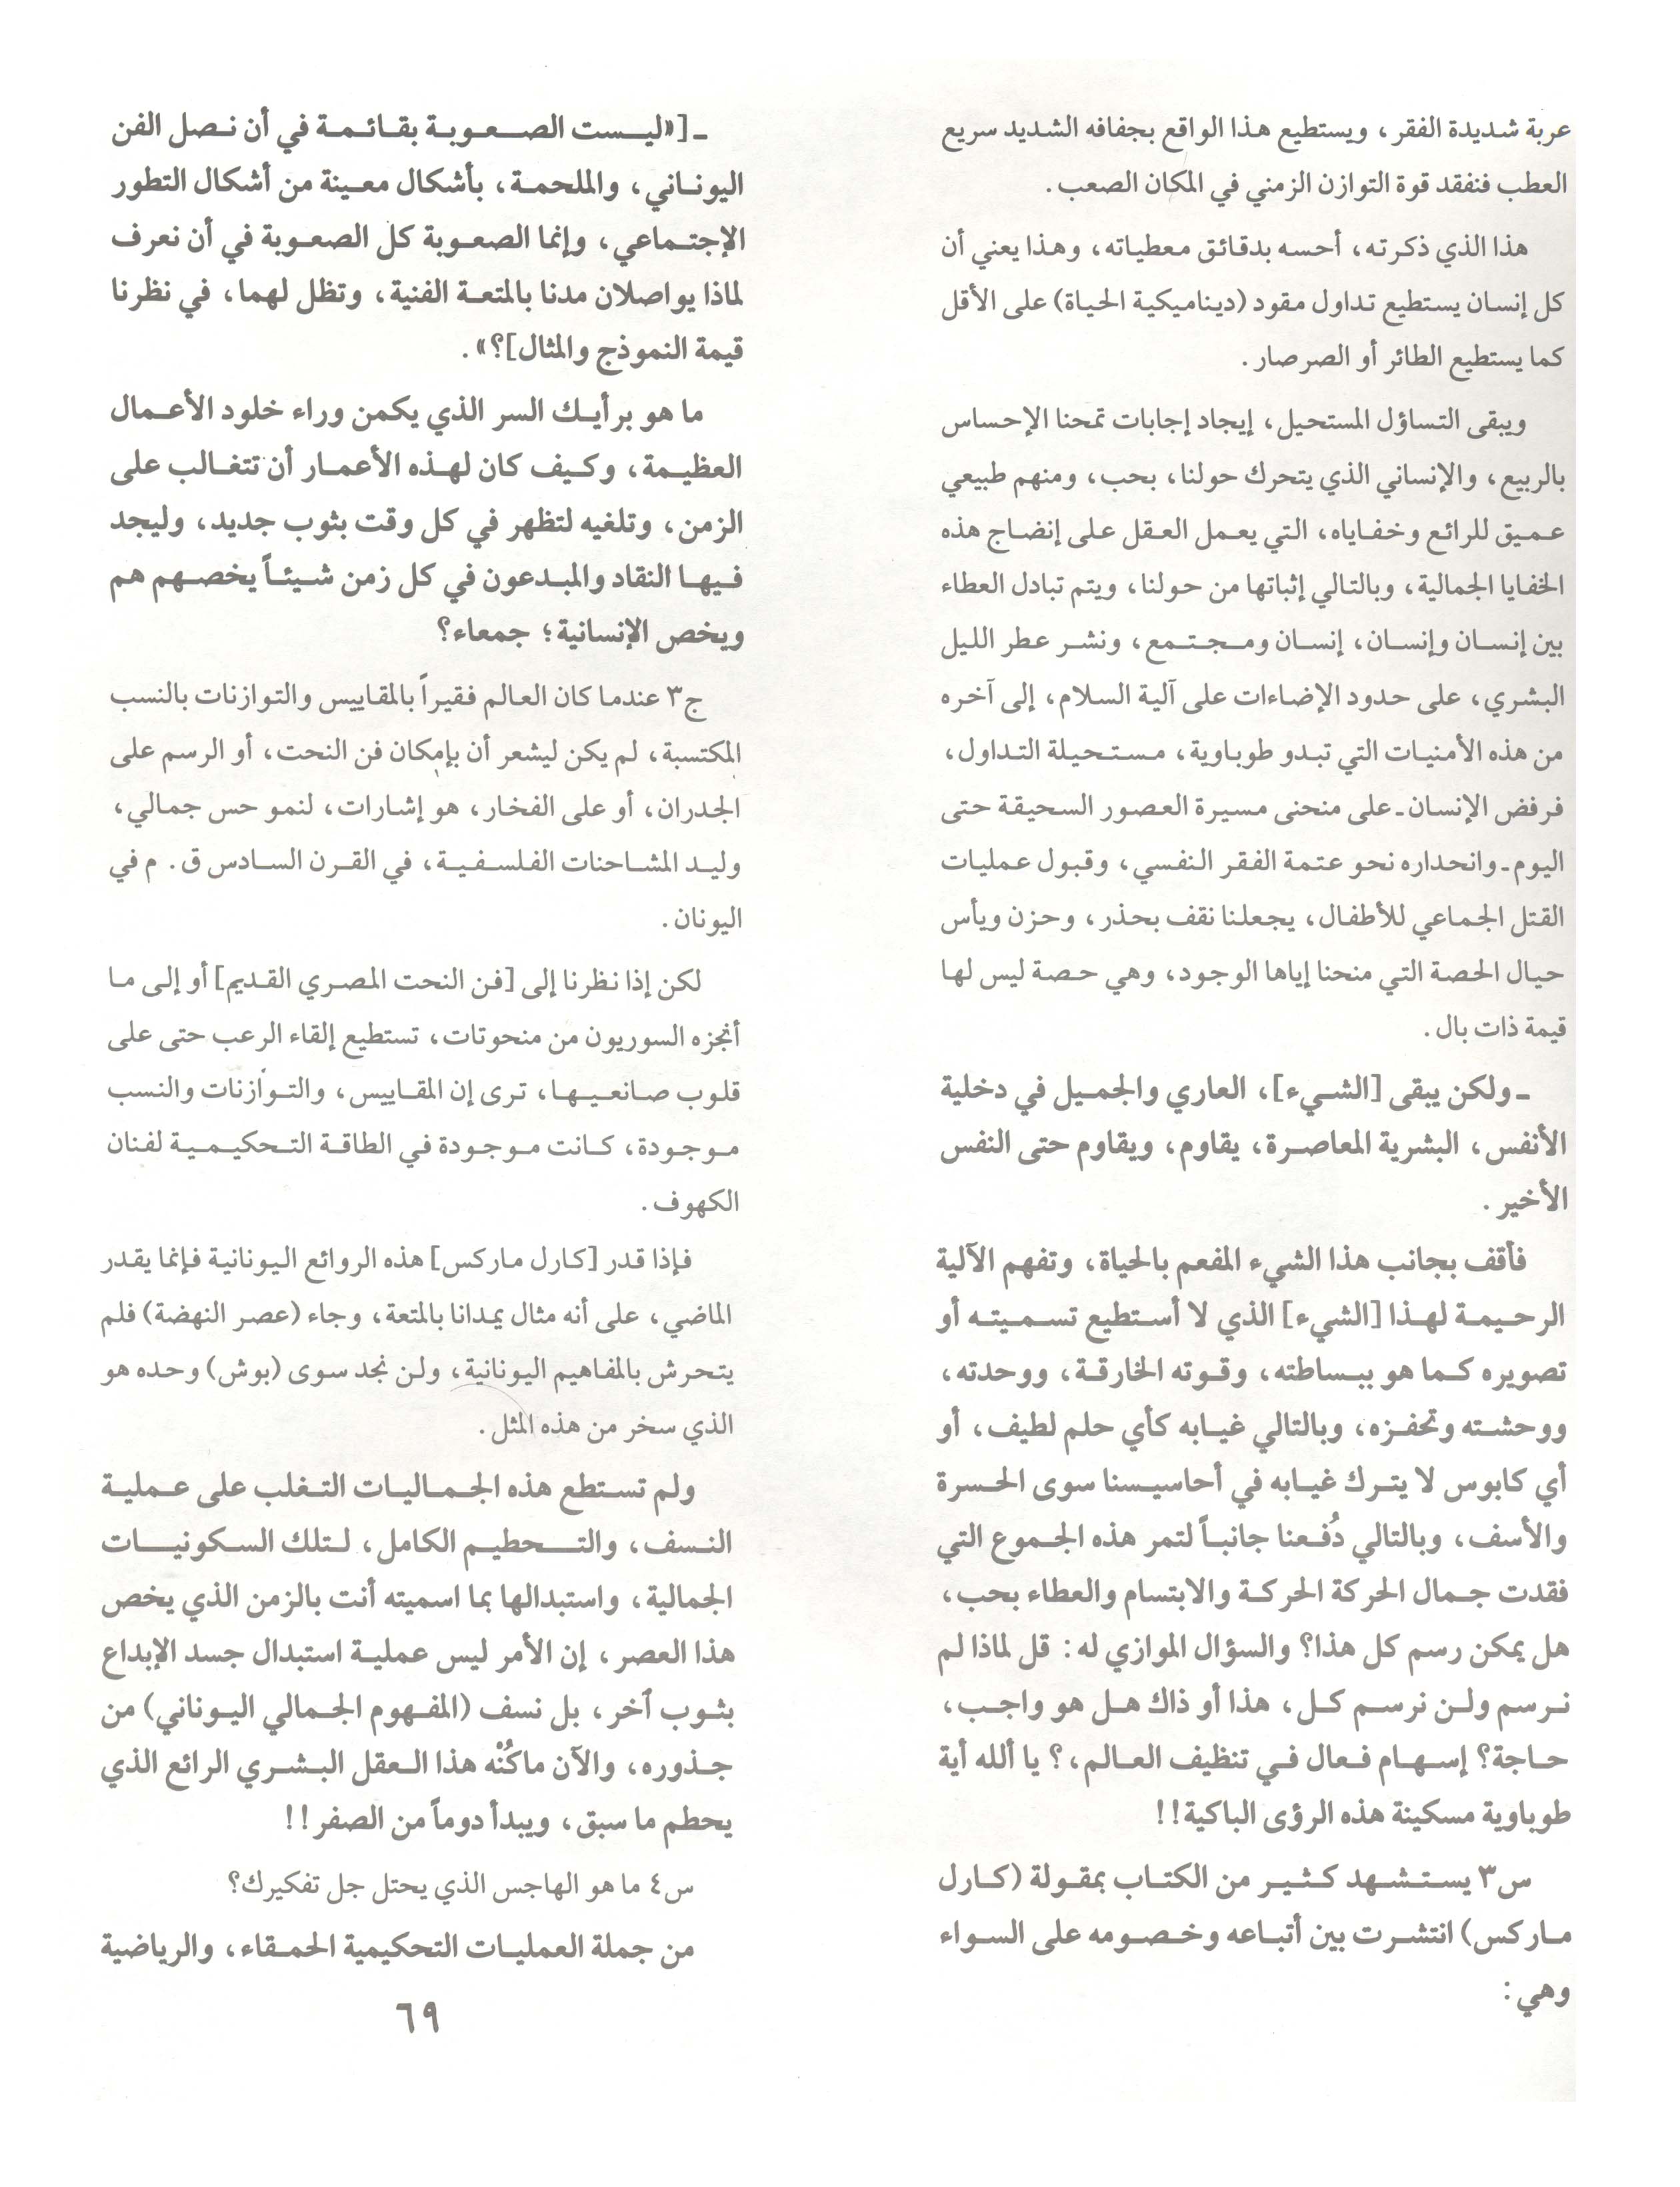 عربة شديدة الفقر، ويستطيع هذا الواقع بجفافه الشديد سريع
العطب فنفقد قوة التوازن الزمني في المكان الصعب.
هذا الذي ذكرته، أحسه بدقائق معطياته، وهذا يعني أن
كل إنسان يستطيع تداول مقود (ديناميكية الحياة) على الأقل
كما يستطيع الطائر أو الصرصار.
ويبقى التساؤل المستحيل، إيجاد إجابات تمحنا الإحساس
بالربيع، والإنساني الذي يتحرك حولنا، بحب، ومنهم طبيعي
عميق للرائع وخفاياه، التي يعمل العقل على إنضاج هذه
الخفايا الجمالية، وبالتالي إثباتها من حولنا، ويتم تبادل العطاء
بين إنسان وإنسان، إنسان ومجتمع، ونشر عطر الليل
البشري، على حدود الإضاءات على آلية السلام، إلى آخره
من هذه الأمنيات التي تبدو طوباوية، مستحيلة التداول،
فرفض الإنسان ـ على منحنى مسيرة العصور السحيقة حتى
اليوم ـ وانحداره نحو عتمة الفقر النفسي، وقبول عمليات
القتل الجماعي للأطفال، يجعلنا نقف بحذر، وحزن ويأس
حيال الحصة التي منحنا إياها الوجود، وهي حصة ليس لها
قيمة ذات بال.
ـ ولكن يبقى [الشيء]، العاري والجميل في دخلية
الأنفس، البشرية المعاصرة، يقاوم، ويقاوم حتى النفس
الأخير.
فأقف بجانب هذا الشيء المفعم بالحياة، وتفهم الآلية
الرحيمة لهذا [الشيء] الذي لا أستطيع تسميته أو
تصويره كما هو ببساطته، وقوته الخارقة، ووحدته،
ووحشته وتحفزه، وبالتالي غيابه كأي حلم لطيف، أو
أي كابوس لا يترك غيابه في أحاسيسنا سوى الحسرة
والأسف، وبالتالي دُفعنا جانباً لتمر هذه الجموع التي
فقدت جمال الحركة الحركة والابتسام والعطاء بحب،
هل يمكن رسم كل هذا؟ والسؤال الموازي له: قل لماذا لم
نرسم ولن نرسم كل، هذا أو ذاك هل هو واجب،
حاجة؟ إسهام فعال في تنظيف العالم،؟ يا ألله أية
طوباوية مسكينة هذه الرؤى الباكية!!
س٣ يستشهد كثير من الكتاب بمقولة (كارل
ماركس) انتشرت بين أتباعه وخصومه على السواء
وهي:
ـ [«ليست الصعوبة بقائمة في أن نصل الفن
اليوناني، والملحمة، بأشكال معينة من أشكال التطور
الإجتماعي، وإنما الصعوبة كل الصعوبة في أن نعرف
لماذا يواصلان مدنا بالمتعة الفنية، وتظل لهما، في نظرنا
قيمة النموذج والمثال]؟».
ما هو برأيك السر الذي يكمن وراء خلود الأعمال
العظيمة، وكيف كان لهذه الأعمار أن تتغالب على
الزمن، وتلغيه لتظهر في كل وقت بثوب جديد، وليجد
فيها النقاد والمبدعون في كل زمن شيئاً يخصهم هم
ويخص الإنسانية؛ جمعاء؟
ج٣ عندما كان العالم فقيراً بالمقاييس والتوازنات بالنسب
المكتسبة، لم يكن ليشعر أن بإمكان فن النحت، أو الرسم على
الجدران، أو على الفخار، هو إشارات، لنمو حس جمالي،
وليد المشاحنات الفلسفية، في القرن السادس ق. م في
اليونان.
لكن إذا نظرنا إلى [فن النحت المصري القديم] أو إلى ما
أنجزه السوريون من منحوتات، تستطيع إلقاء الرعب حتى على
قلوب صانعيها، ترى إن المقاييس، والتوازنات والنسب
موجودة، كانت موجودة في الطاقة التحكيمية لفنان
الكهوف.
فإذا قدر [كارل ماركس] هذه الروائع اليونانية فإنما يقدر
الماضي، على أنه مثال يمدانا بالمتعة، وجاء (عصر النهضة) فلم
يتحرش بالمفاهيم اليونانية، ولن نجد سوى (بوش) وحده هو
الذي سخر من هذه المثل.
ولم تستطع هذه الجماليات التغلب على عملية
النسف، والتحطيم الكامل، لتلك السكونيات
الجمالية، واستبدالها بما اسميته أنت بالزمن الذي يخص
هذا العصر، إن الأمر ليس عملية استبدال جسد الإبداع
بثوب آخر، بل نسف (المفهوم الجمالي اليوناني) من
جذوره، والآن ماكُنْه هذا العقل البشري الرائع الذي
يحطم ما سبق، ويبدأ دوماً من الصفر!!
س٤ ما هو الهاجس الذي يحتل جل تفكيرك؟
من جملة العمليات التحكيمية الحمقاء، والرياضية
٦٩